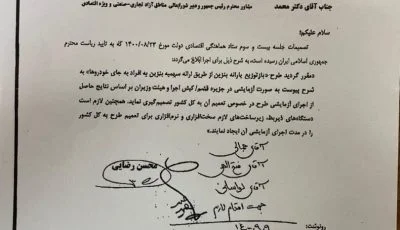 جناب آقای دکتر محمد
مشاور محترم رئیس جمهور و دبیر شورایعالی مناطق آزاد تجاری-صنعتی و ویژه اقتصادی
سلام علیکم؛
تصمیمات جلسه بیست و سوم ستاد هماهنگی اقتصادی دولت مورخ ۱۴۰۰/۰۸/۲۳ که به تایید ریاست محترم
جمهوری اسلامی ایران رسیده است، به شرح ذیل برای اجرا ابلاغ می‌گردد:
«مقرر گردید طرح «بازتوزیع یارانه بنزین از طریق ارائه سهمیه بنزین به افراد به جای خودروها» به
شرح پیوست به صورت آزمایشی در جزیره قشم/کیش اجرا و هیئت وزیران بر اساس نتایج حاصل
از اجرای آزمایشی طرح در خصوص تعمیم آن به کل کشور تصمیم‌گیری نماید. همچنین لازم است
دستگاه‌های ذیربط، زیرساخت‌های لازم سخت‌افزاری و نرم‌افزاری برای تعمیم طرح به کل کشور
را در مدت اجرای آزمایشی آن ایجاد نمایند.»
محسن رضایی
آقای
آقای
آقای
جهت اقدام لازم
رونوشت: